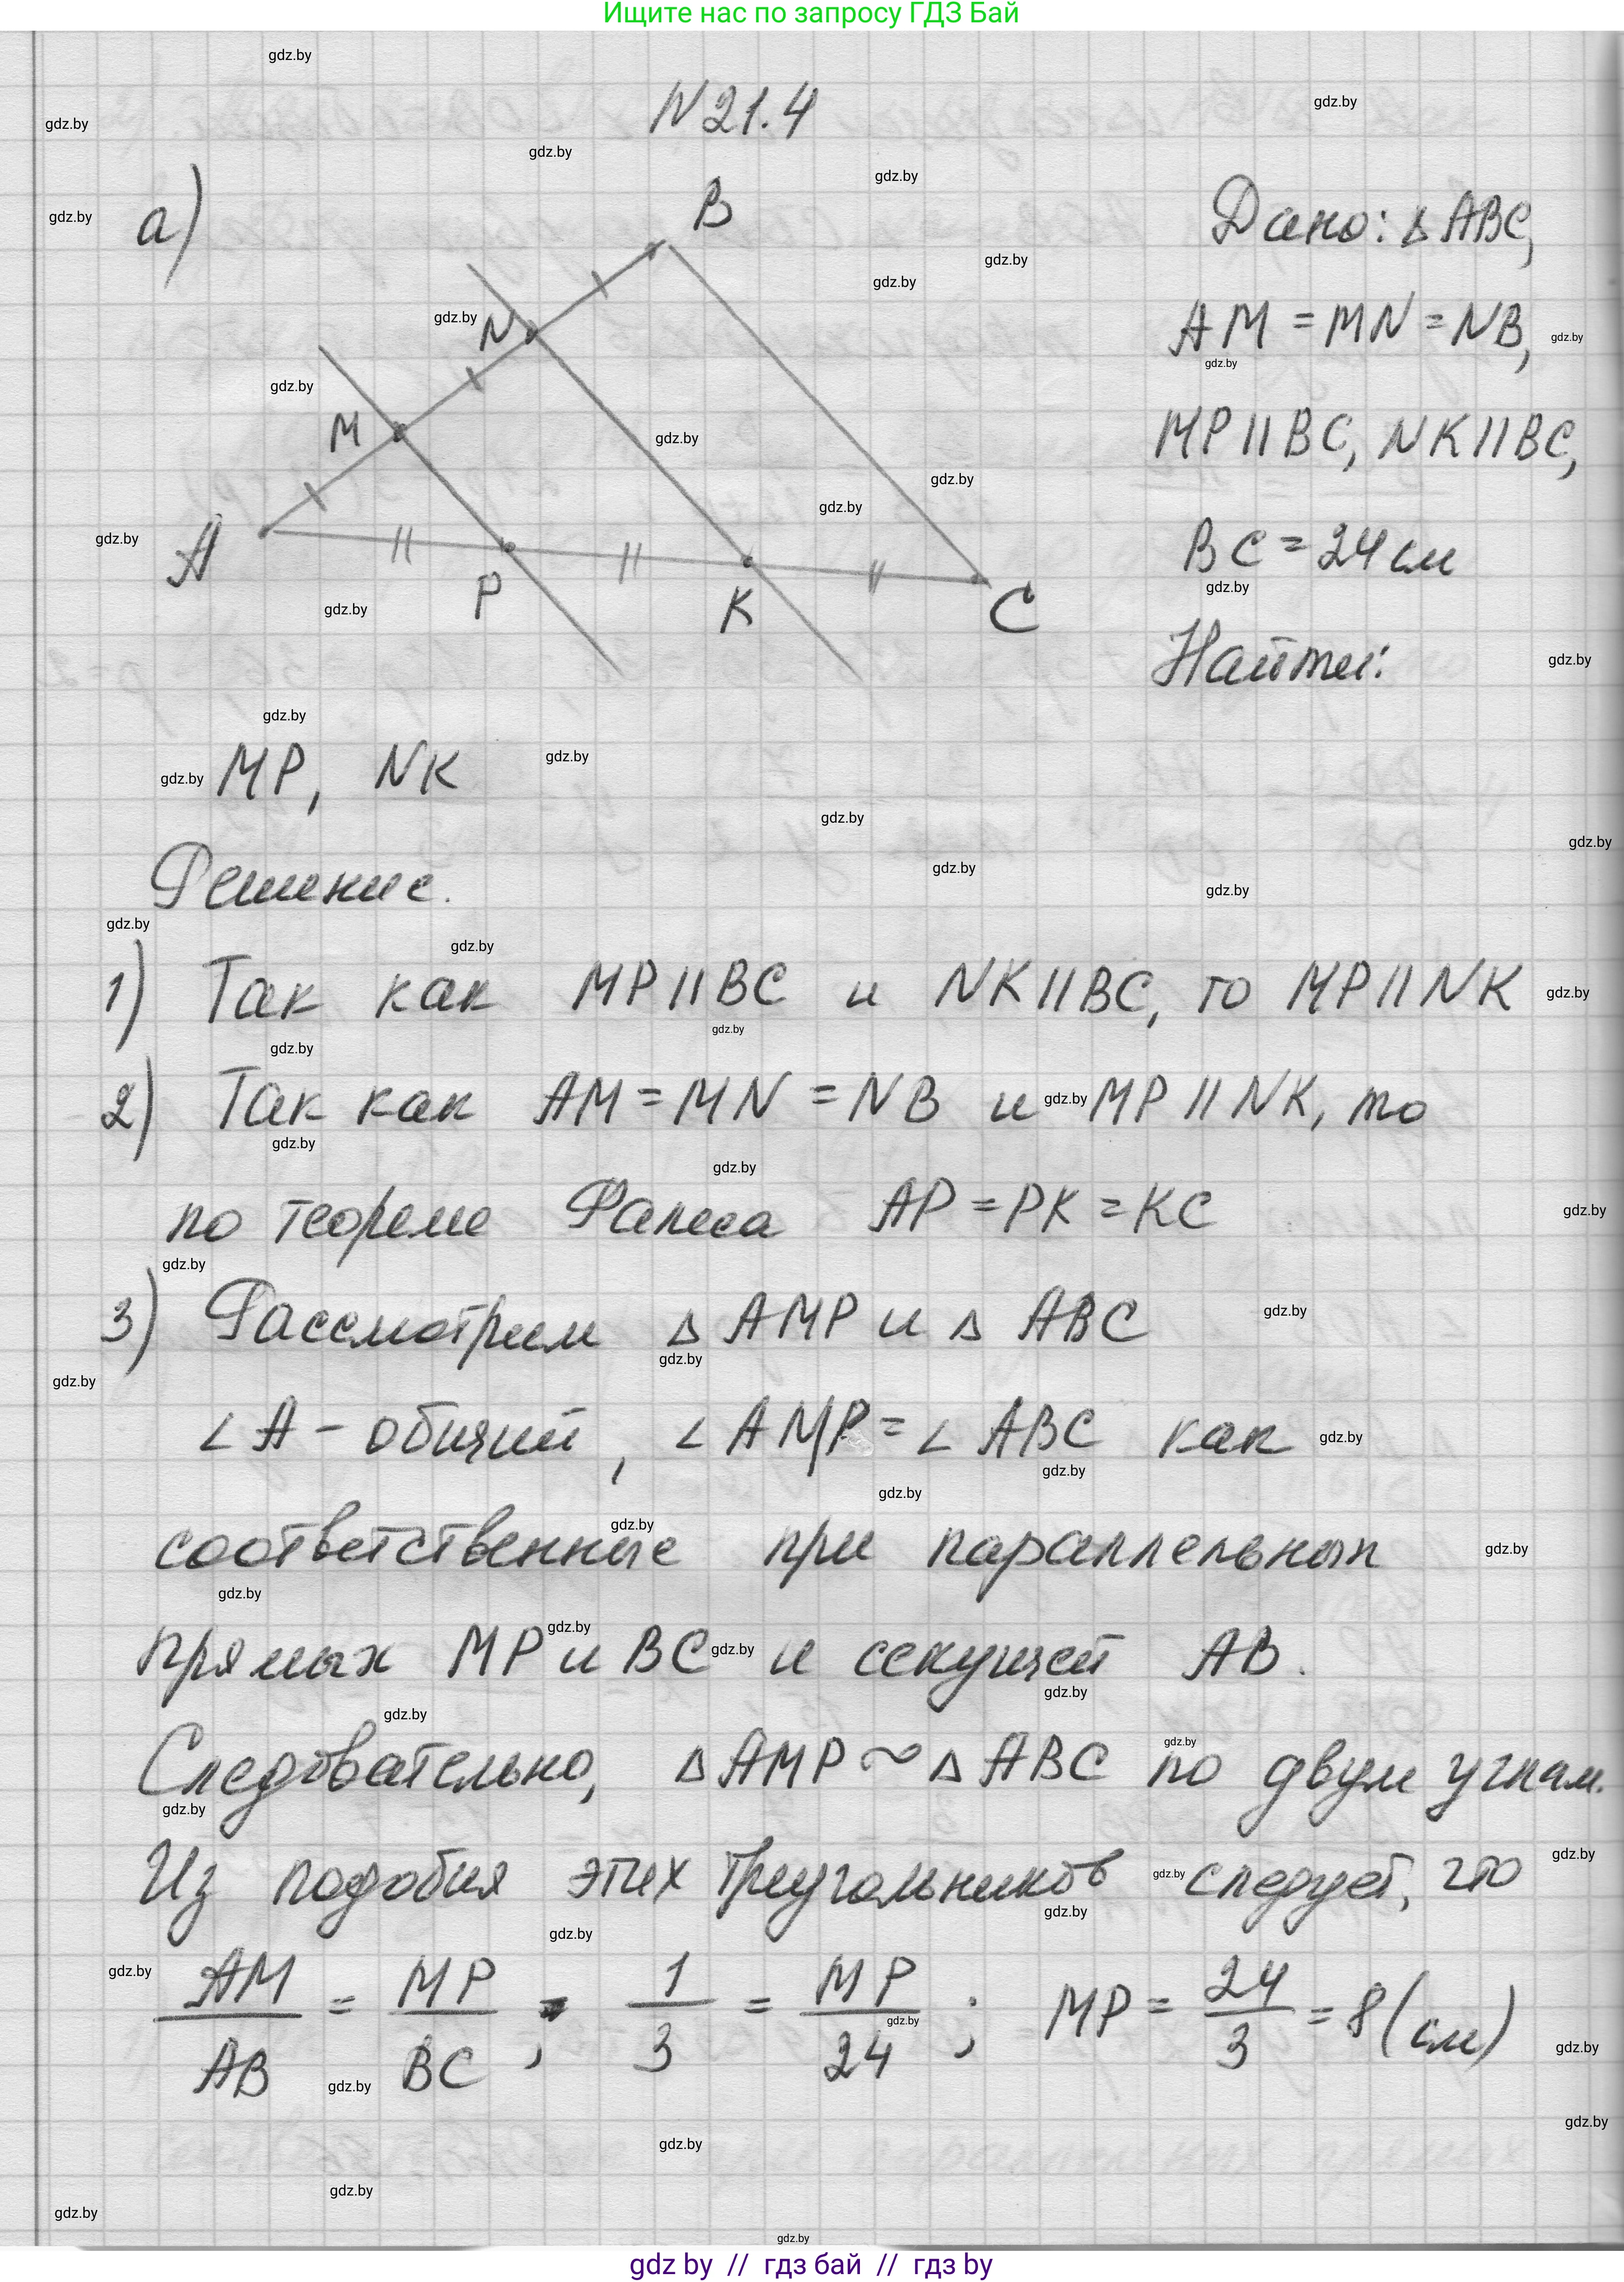 Ищите нас по запросу ГДЗ Бай
N 21.4
а)
B
N
M
A
P
K
C
Дано: Δ ABC,
AM = MN = NB,
MP || BC, NK || BC,
BC = 24 см
Найти:
MP, NK
Решение.
1) Так как MP || BC и NK || BC, то MP || NK
2) Так как AM = MN = NB и MP || NK, то
по теореме Фалеса AP = PK = KC
3) Рассмотрим Δ AMP и Δ ABC
∠ A - общий, ∠ AMP = ∠ ABC как
соответственные при параллельных
прямых MP и BC и секущей AB.
Следовательно, Δ AMP ~ Δ ABC по двум углам.
Из подобия этих треугольников следует, что
AM/AB = MP/BC ; 1/3 = MP/24 ; MP = 24/3 = 8 (см)
gdz by // гдз бай // гдз by